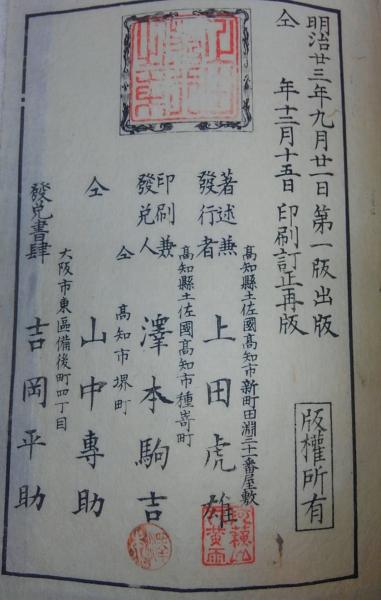 明治廿三年九月廿一日第一版出版
仝年十二月十五日印刷訂正再版
版權所有
高知縣土佐國高知市新町田淵三十一番屋敷
著述兼發行者 上田虎雄
高知縣土佐國高知市種嵜町
印刷兼發兌人 澤本駒吉
仝 高知市堺町
仝 山中專助
大阪市東區備後町四丁目
發兌書肆 吉岡平助